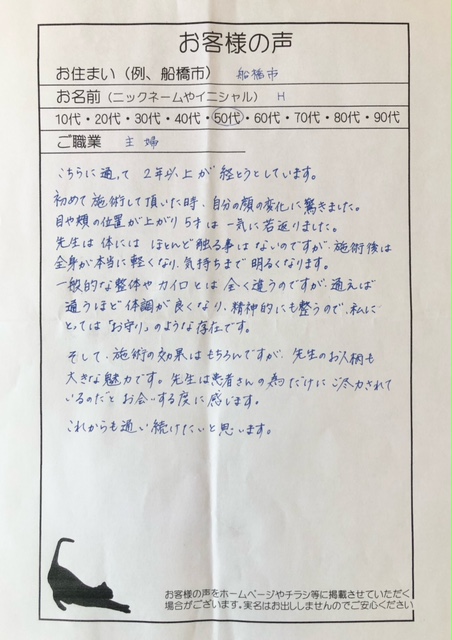 お客様の声
お住まい（例、船橋市） 船橋市
お名前（ニックネームやイニシャル） H
10代・20代・30代・40代・50代・60代・70代・80代・90代
ご職業 主婦
こちらに通って2年以上が経とうとしています。
初めて施術して頂いた時、自分の顔の変化に驚きました。
目や頬の位置が上がり5才は一気に若返りました。
先生は体にはほとんど触る事はないのですが、施術後は
全身が本当に軽くなり、気持ちまで明るくなります。
一般的な整体やカイロとは全く違うのですが、通えば
通うほど体調が良くなり、精神的にも整うので、私に
とっては「お守り」のような存在です。
そして、施術の効果はもちろんですが、先生のお人柄も
大きな魅力です。先生は患者さんの為だけにご尽力されて
いるのだとお会いする度に感じます。
これからも通い続けたいと思います。
お客様の声をホームページやチラシ等に掲載させていただく
場合がございます。実名はお出ししませんのでご安心ください